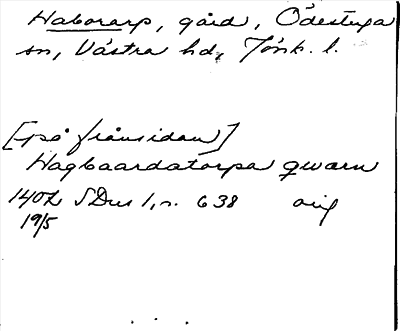 Haborarp, gård, Ödestuga
sn, Västra hd, Jönk. l.
[på frånsidan]
Hagbaardatorpa qwarn
1402 SDns 1, s. 638 orig
19/5